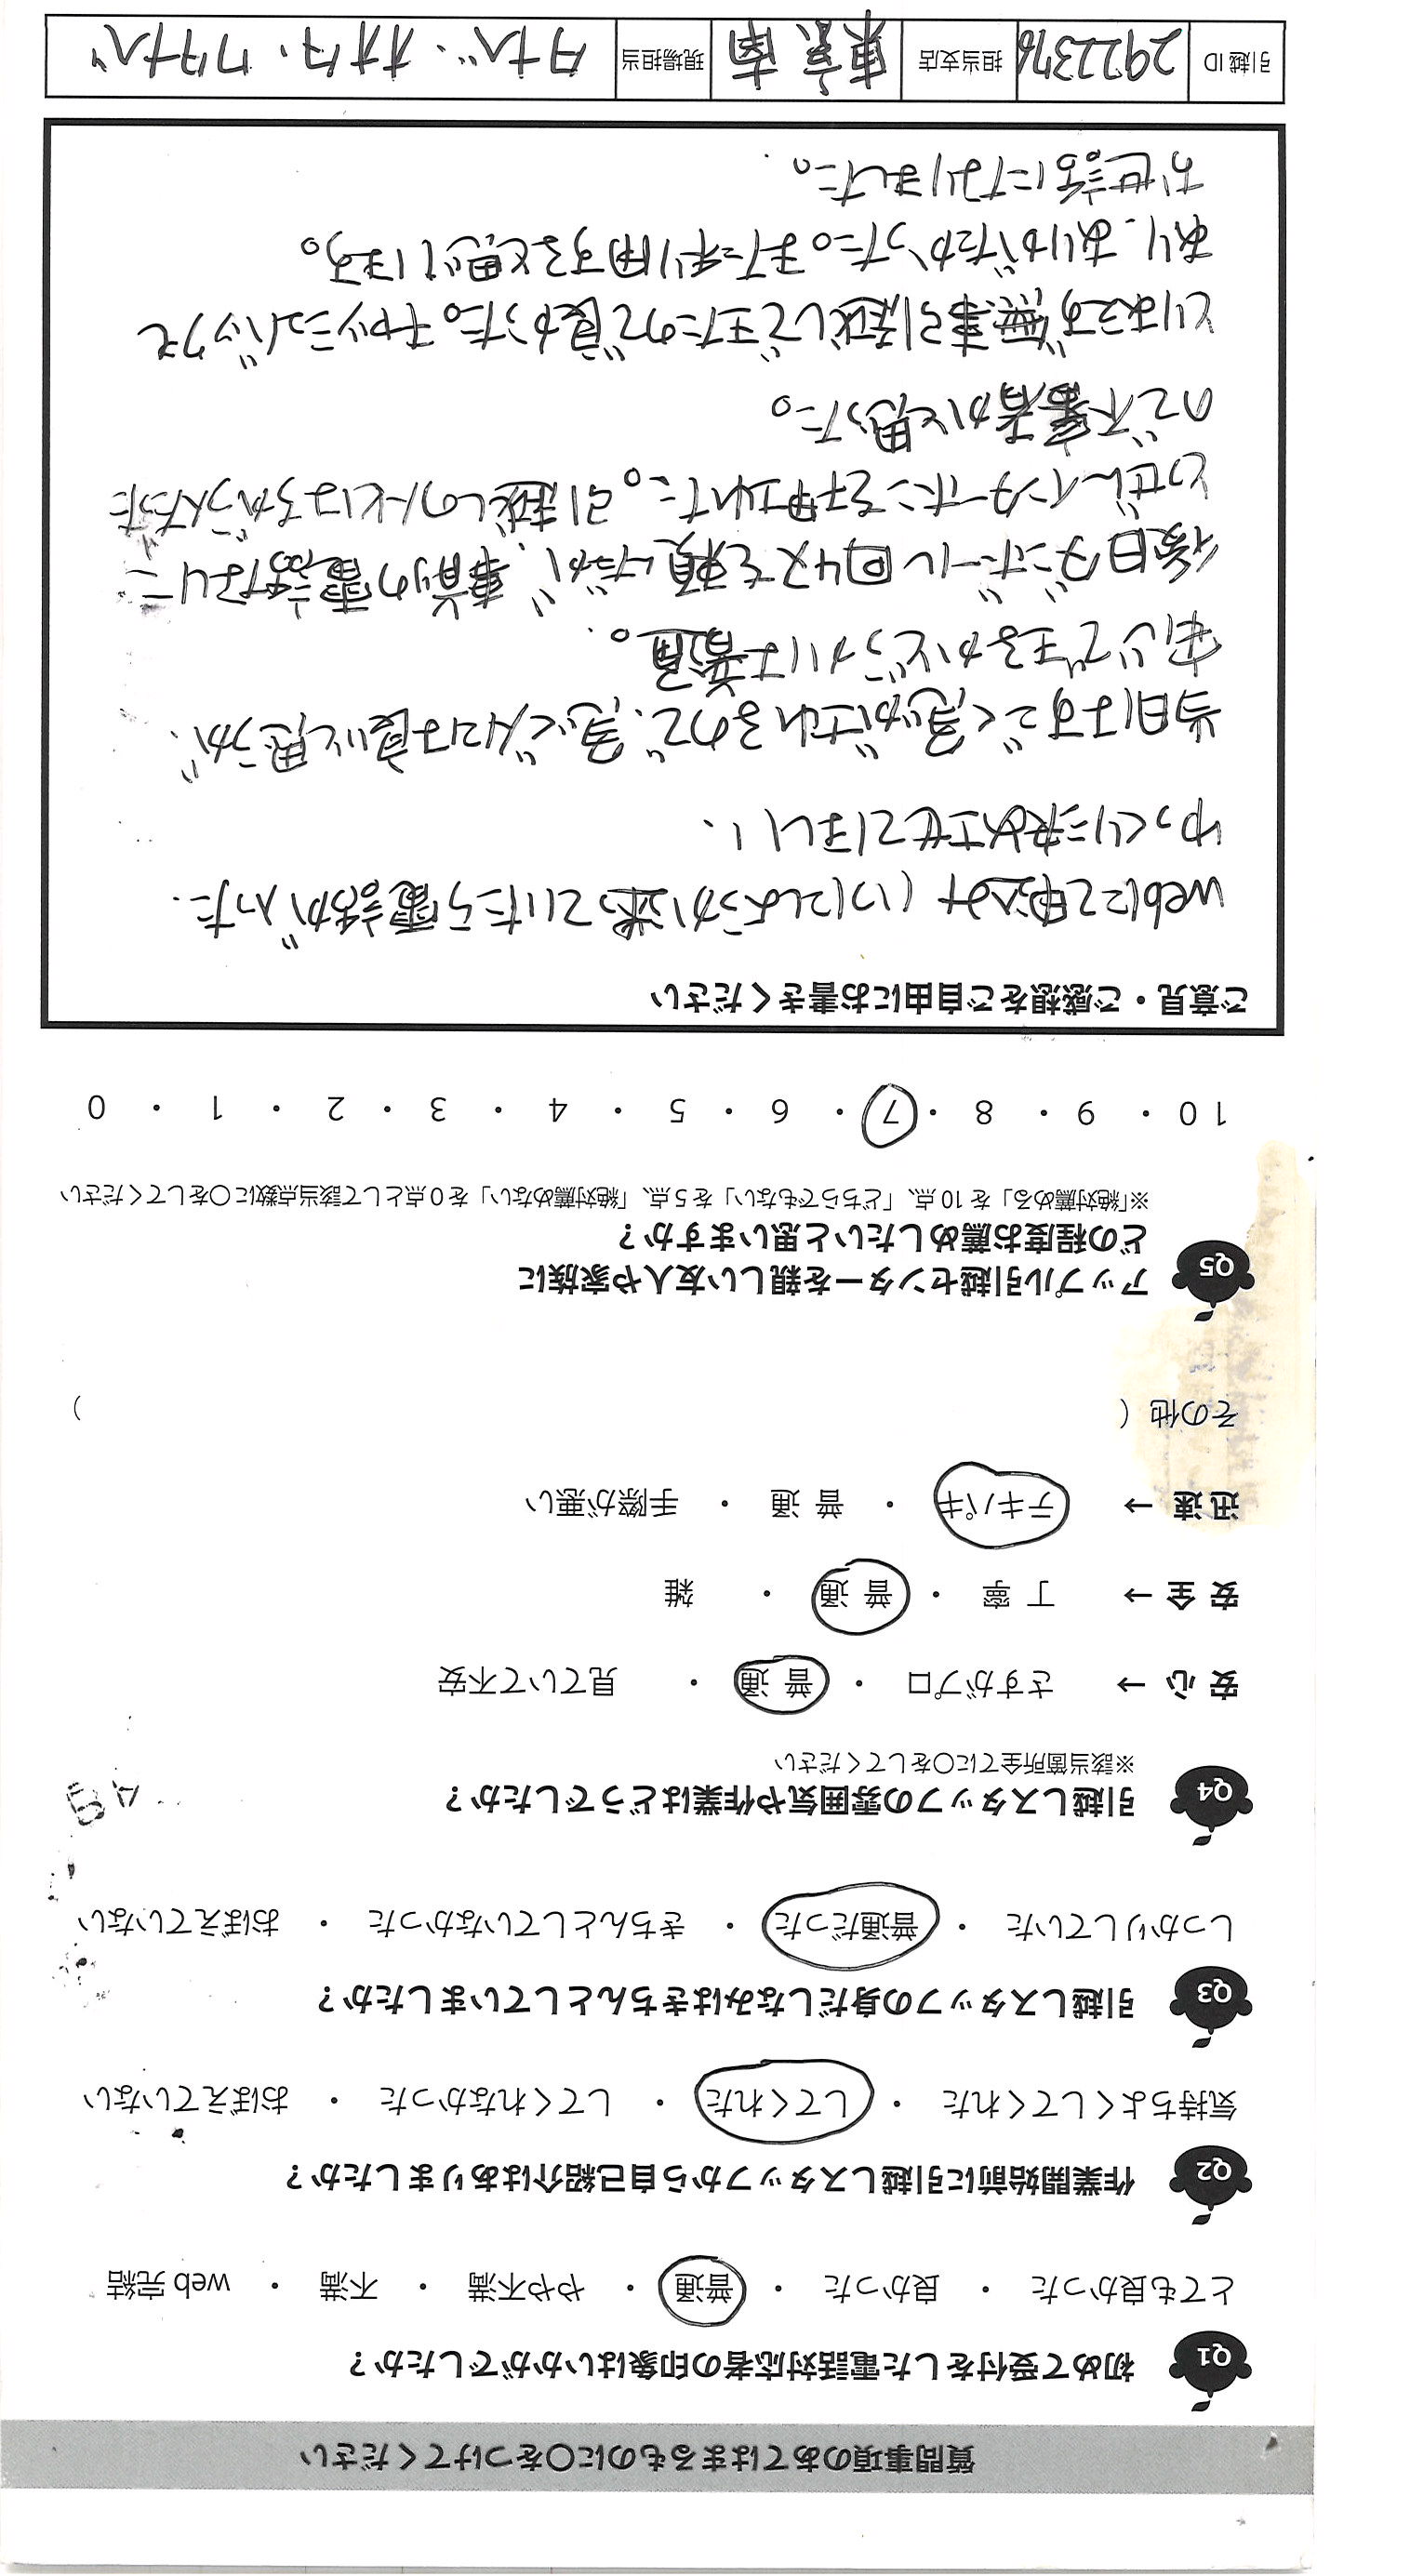 質問事項のあてはまるものに○をつけてください
Q1 初めて受付をした電話対応者の印象はいかがでしたか？
とても良かった ・ 良かった ・ 普通 ・ やや不満 ・ 不満 ・ web 完結
Q2 作業開始前に引越しスタッフから自己紹介はありましたか？
気持ちよくしてくれた ・ してくれた ・ してくれなかった ・ おぼえていない
Q3 引越しスタッフの身だしなみはきちんとしていましたか？
しっかりしていた ・ 普通だった ・ きちんとしていなかった ・ おぼえていない
Q4 引越しスタッフの雰囲気や作業はどうでしたか？
※該当箇所全てに○をしてください
安 心 → さすがプロ ・ 普 通 ・ 見ていて不安
安 全 → 丁 寧 ・ 普 通 ・ 雑
迅 速 → テキパキ ・ 普 通 ・ 手際が悪い
その他（ ）
Q5 アップル引越センターを親しい友人や家族に
どの程度お薦めしたいと思いますか？
※「絶対薦める」を 10 点、「どちらでもない」を 5 点、「絶対薦めない」を 0 点として該当点数に○をしてください
10 ・ 9 ・ 8 ・ 7 ・ 6 ・ 5 ・ 4 ・ 3 ・ 2 ・ 1 ・ 0
ご意見・ご感想をご自由にお書きください
webにて申込み（いつにしようか迷っていたら電話が入った.
ゆっくりに決めさせてほしい、
当日はすごく急がされるので、急ぐんは良いと思うが、
安心できるかどうかは普通。
後日ダンボール回収を頼んだが、事前の電話なしに
とつぜんインターホンを押された。引越しの人とはちがう人だった
ので不審者かと思った。
とりあえず無事引越しできたので良かった。キャッシュバックも
あり、ありがたかった。また利用すると思います。
お世話になりました。
引越ID 2922376 担当支店 東京南 現場担当 タナベ・オオタ・ワタナベ